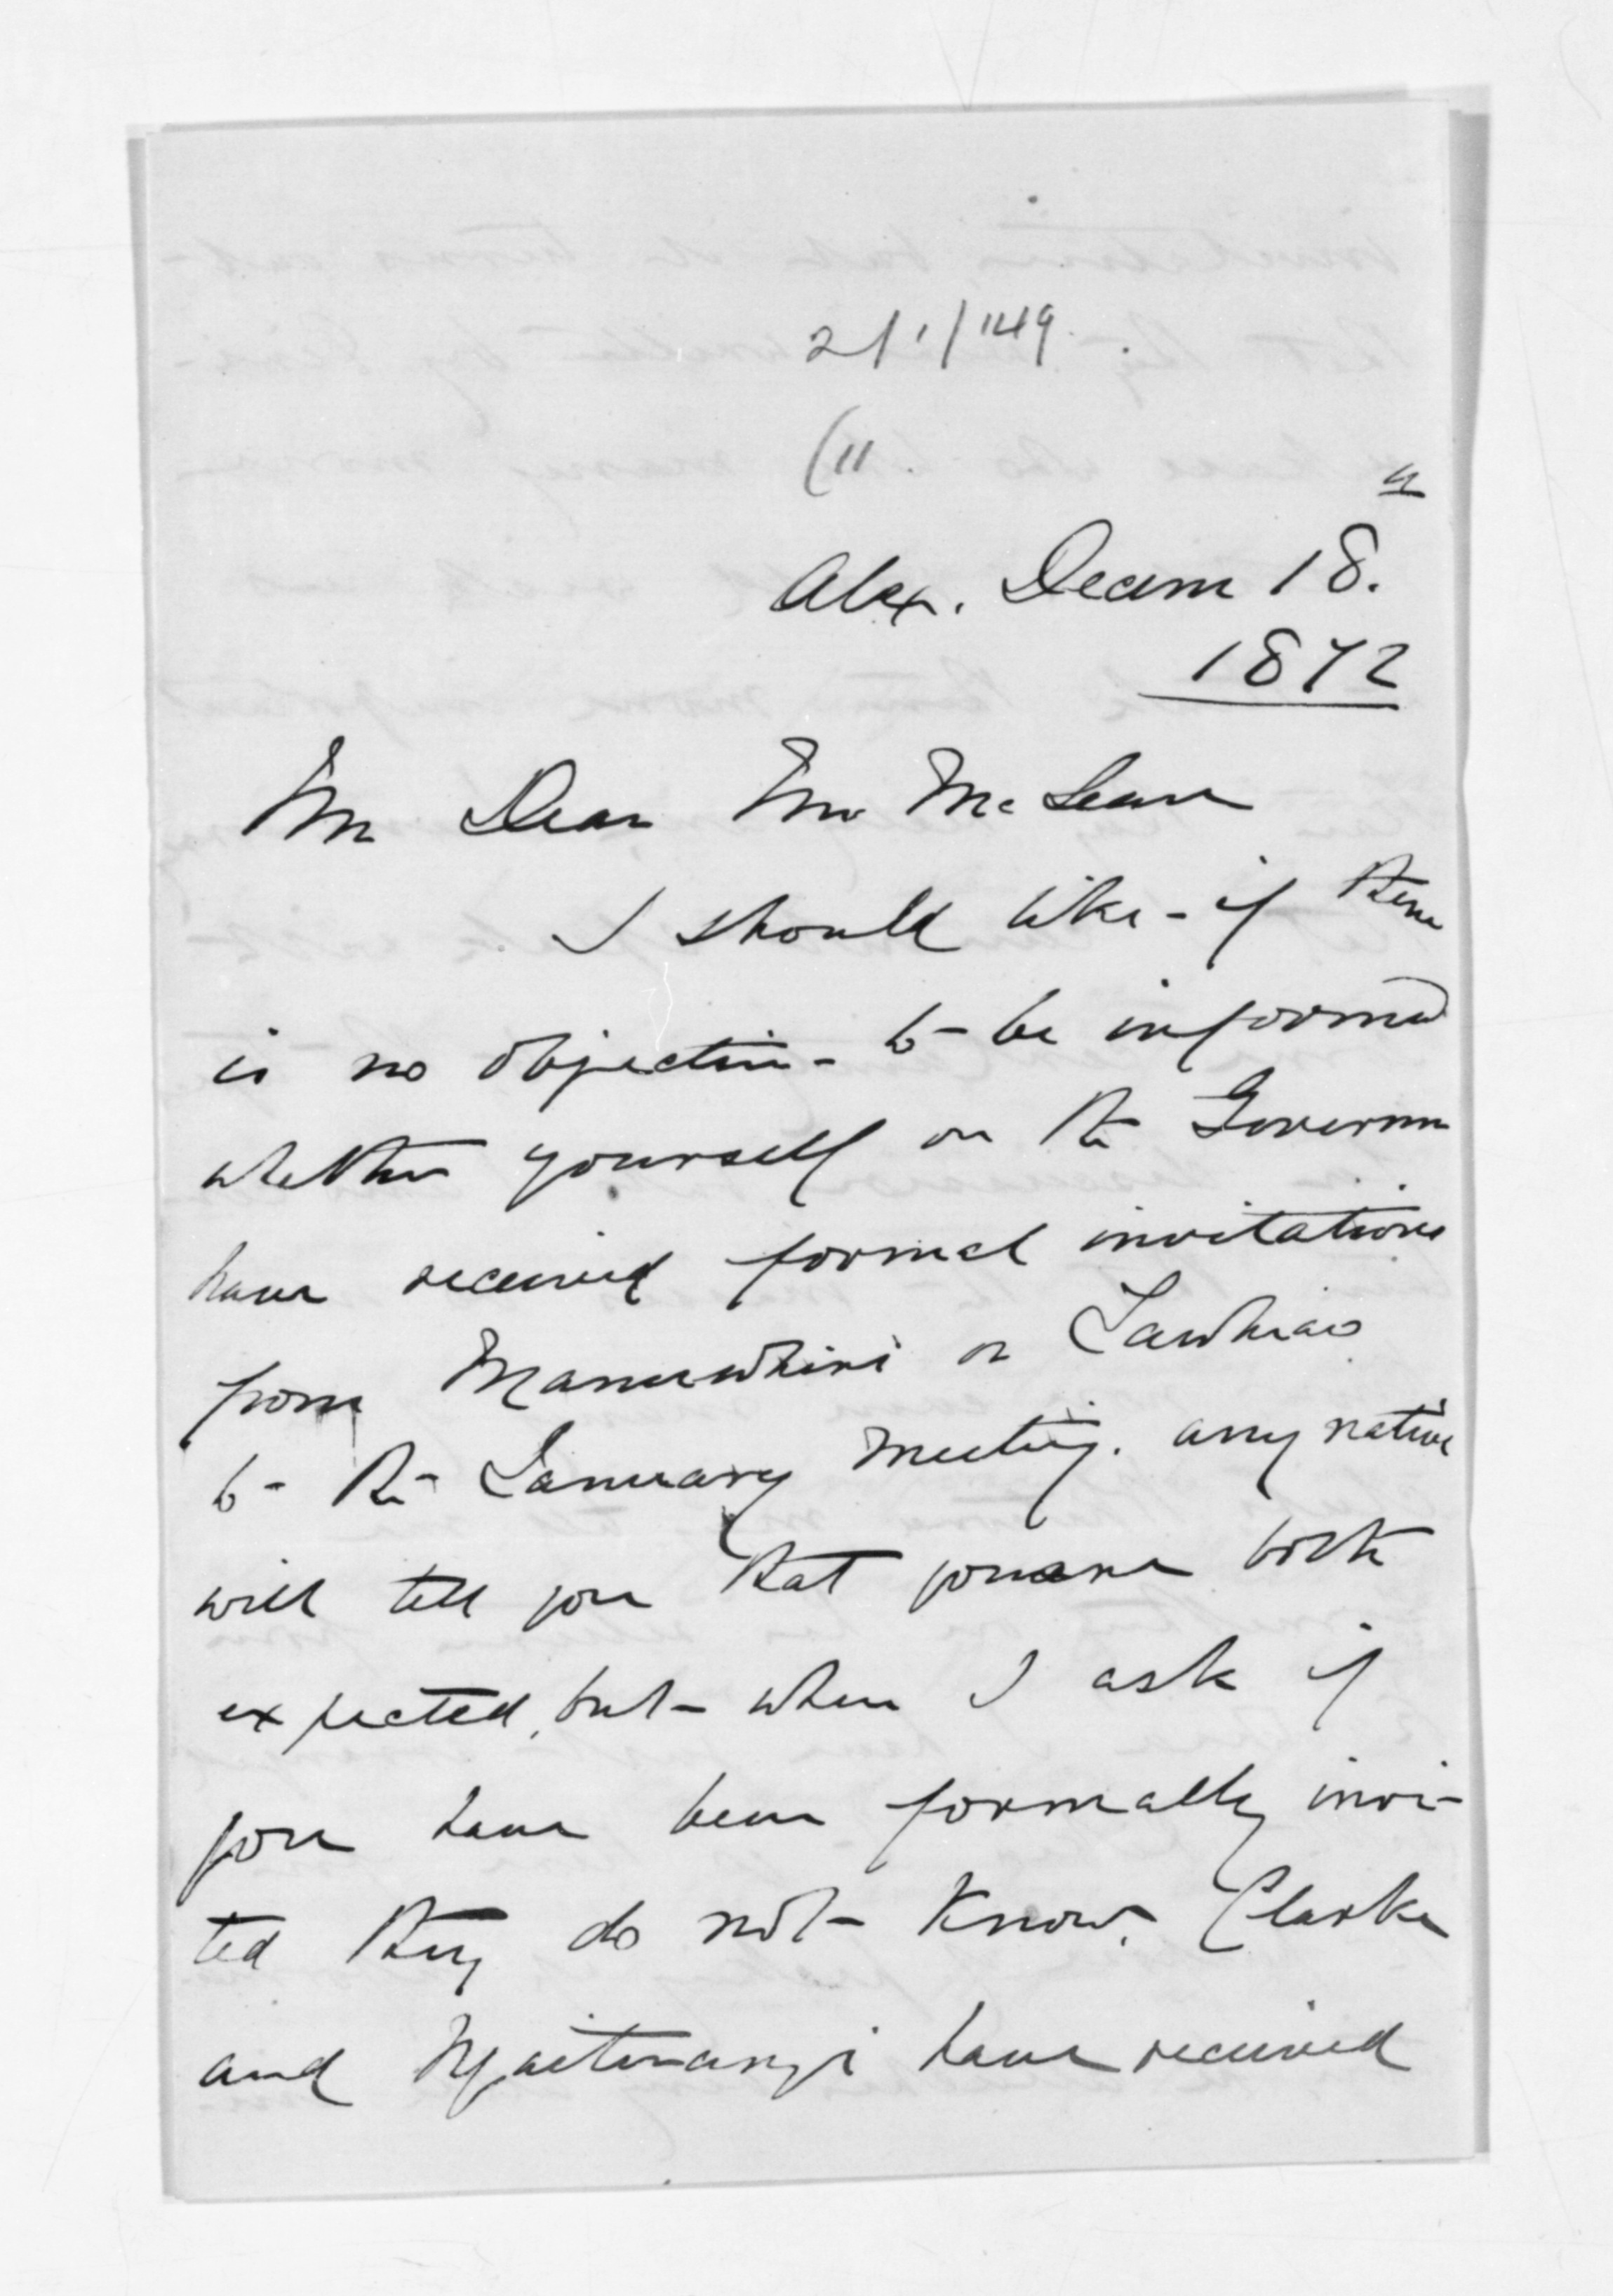 21/1/149.
(11.
Alex. Decem 18.
1872
My Dear Mr McLean
I should like - if there
is no objection - to be informed
whether yourself or the Governor
have received formal invitations
from Manuwhiri or Tawhiao
to the January meeting. any native
will tell you that you are both
expected, but when I ask if
you have been formally invi-
ted they do not know. Clarke
and Ngaiterangi have received